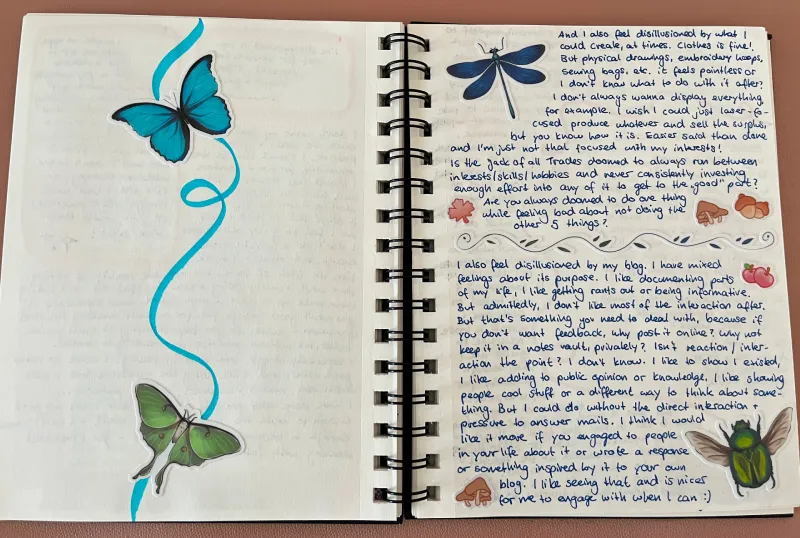 And I also feel disillusioned by what I
could create, at times. Clothes is fine!
But physical drawings, embroidery hoops,
sewing bags, etc. it feels pointless or
I don't know what to do with it after?
I don't always wanna display everything
for example. I wish I could just laser-fo-
cused produce whatever and sell the surplus,
but you know how it is. Easier said than done
and I'm just not that focused with my interests!
Is the Jack of all Trades doomed to always run between
interests/skills/hobbies and never consistently investing
enough effort into any of it to get to the „good" part?
Are you always doomed to do one thing
while feeling bad about not doing the
other 5 things?
I also feel disillusioned by my blog. I have mixed
feelings about its purpose. I like documenting parts
of my life, I like getting rants out or being informative.
But admittedly, I don't like most of the interaction after.
But that's something you need to deal with, because if
you don't want feedback, why post it online? Why not
keep it in a notes vault, privately? Isn't reaction/inter-
action the point? I don't know. I like to show I existed,
I like adding to public opinion or knowledge, I like showing
people cool stuff or a different way to think about some-
thing. But I could do without the direct interaction +
pressure to answer mails. I think I would
like it more if you engaged to people
in your life about it or wrote a response
or something inspired by it to your own
blog. I like seeing that and is nicer
for me to engage with when I can :)